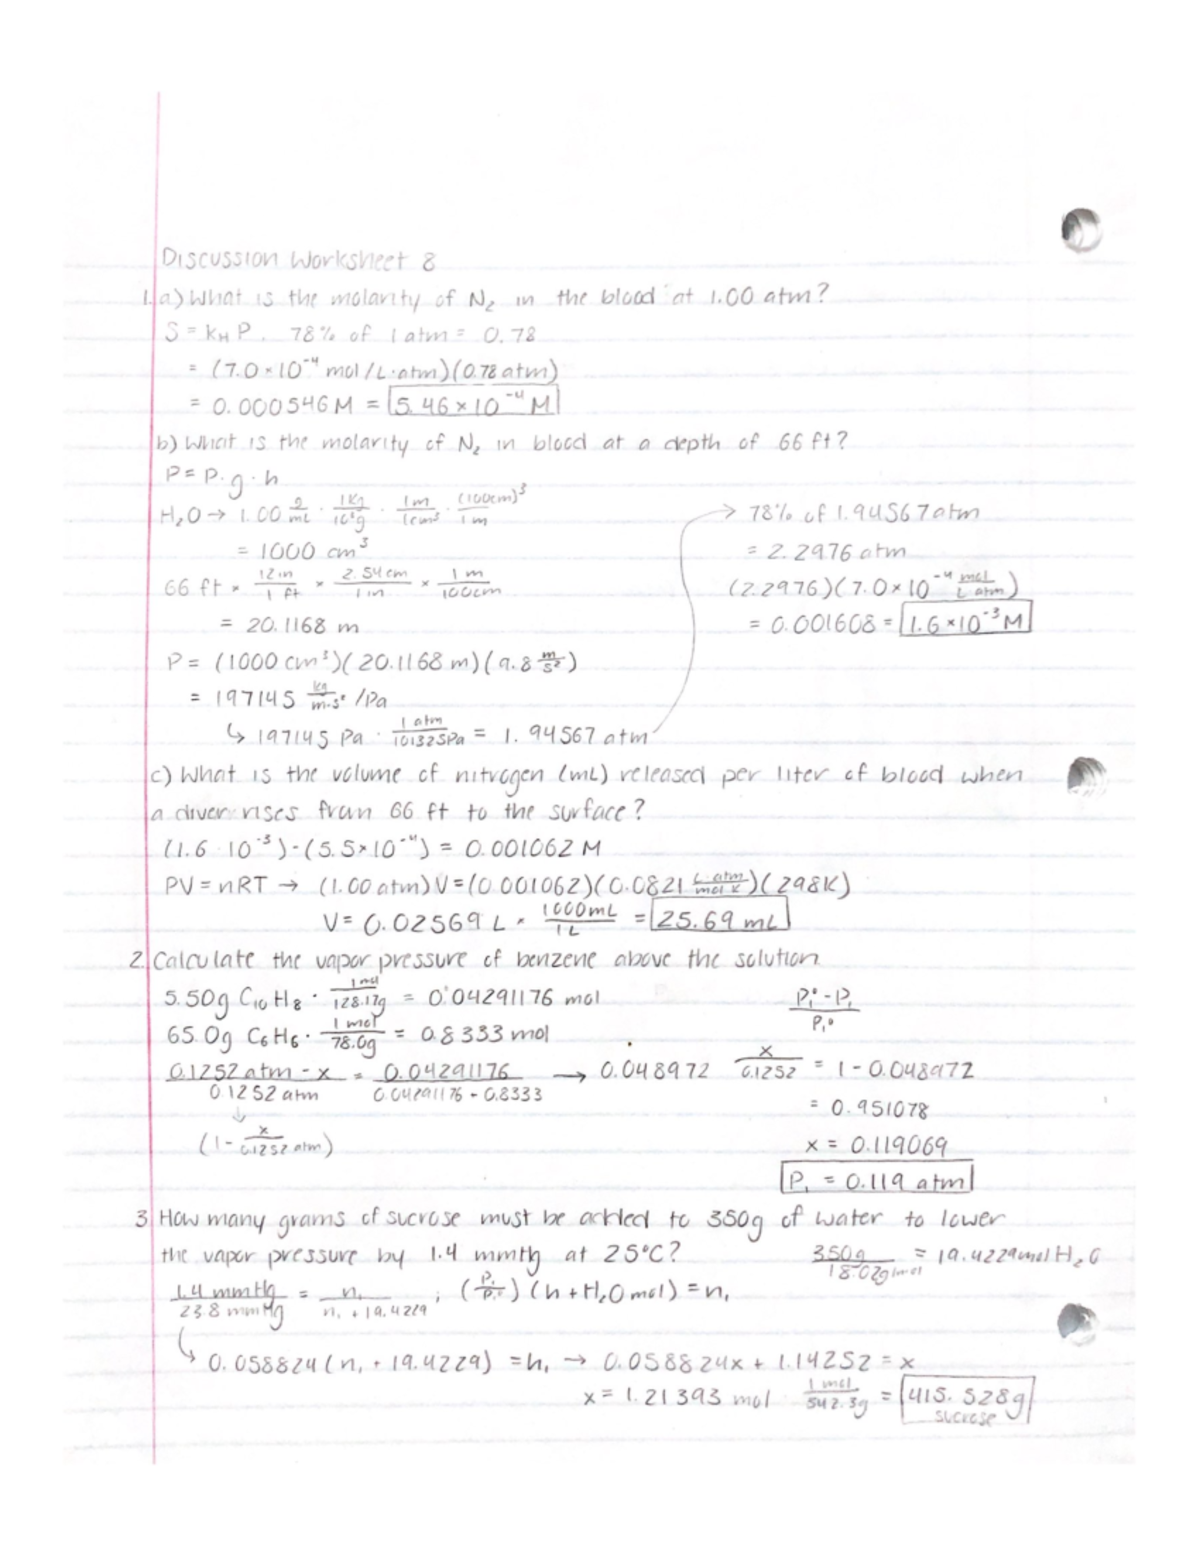 Discussion Worksheet 8
1. a) What is the molarity of N₂ in the blood at 1.00 atm?
S = kH P. 78% of 1 atm = 0.78
= (7.0 × 10⁻⁴ mol/L·atm)(0.78 atm)
= 0.000546 M = 5.46 × 10⁻⁴ M
b) What is the molarity of N₂ in blood at a depth of 66 ft?
P = P · g · h
H₂O → 1.00 g/mL · 1 kg/10³g · 1m/1cm³ · (100cm)³/1m
= 1000 cm³
66 ft × 12 in/1 ft × 2.54 cm/1 in × 1 m/100cm
= 20.1168 m
P = (1000 cm³)(20.1168 m)(9.8 m/s²)
= 197145 kg/m·s² /Pa
↳ 197145 Pa · 1 atm/101325Pa = 1.94567 atm
→ 78% of 1.94567 atm
= 2.2976 atm
(2.2976)(7.0 × 10⁻⁴ mol/L atm)
= 0.001608 = 1.6 × 10⁻³ M
c) What is the volume of nitrogen (mL) released per liter of blood when
a diver rises from 66 ft to the surface?
(1.6 · 10⁻³) - (5.5 × 10⁻⁴) = 0.001062 M
PV = nRT → (1.00 atm) V = (0.001062)(0.0821 L·atm/mol K)(298K)
V = 0.02569 L × 1000mL/1L = 25.69 mL
2. Calculate the vapor pressure of benzene above the solution.
5.50g C₁₀H₈ · 1 mol/128.17g = 0.04291176 mol
65.0g C₆H₆ · 1 mol/78.0g = 0.8333 mol
P₁° - P₁/P₁°
0.1252 atm - x/0.1252 atm = 0.04291176/0.04291176 + 0.8333 → 0.048972
↓
(1 - x/0.1252 atm)
x/0.1252 = 1 - 0.048972
= 0.951078
x = 0.119069
P₁ = 0.119 atm
3. How many grams of sucrose must be added to 350g of water to lower
the vapor pressure by 1.4 mmHg at 25°C?
350g/18.02g/mol = 19.4229 mol H₂O
1.4 mmHg/23.8 mmHg = n₁/n₁ + 19.4229 ; (P₁/P₁°)(n + H₂O mol) = n₁
↳ 0.058824(n₁ + 19.4229) = n₁ → 0.058824x + 1.14252 = x
x = 1.21393 mol · 1 mol/342.3g = 415.528g
sucrose